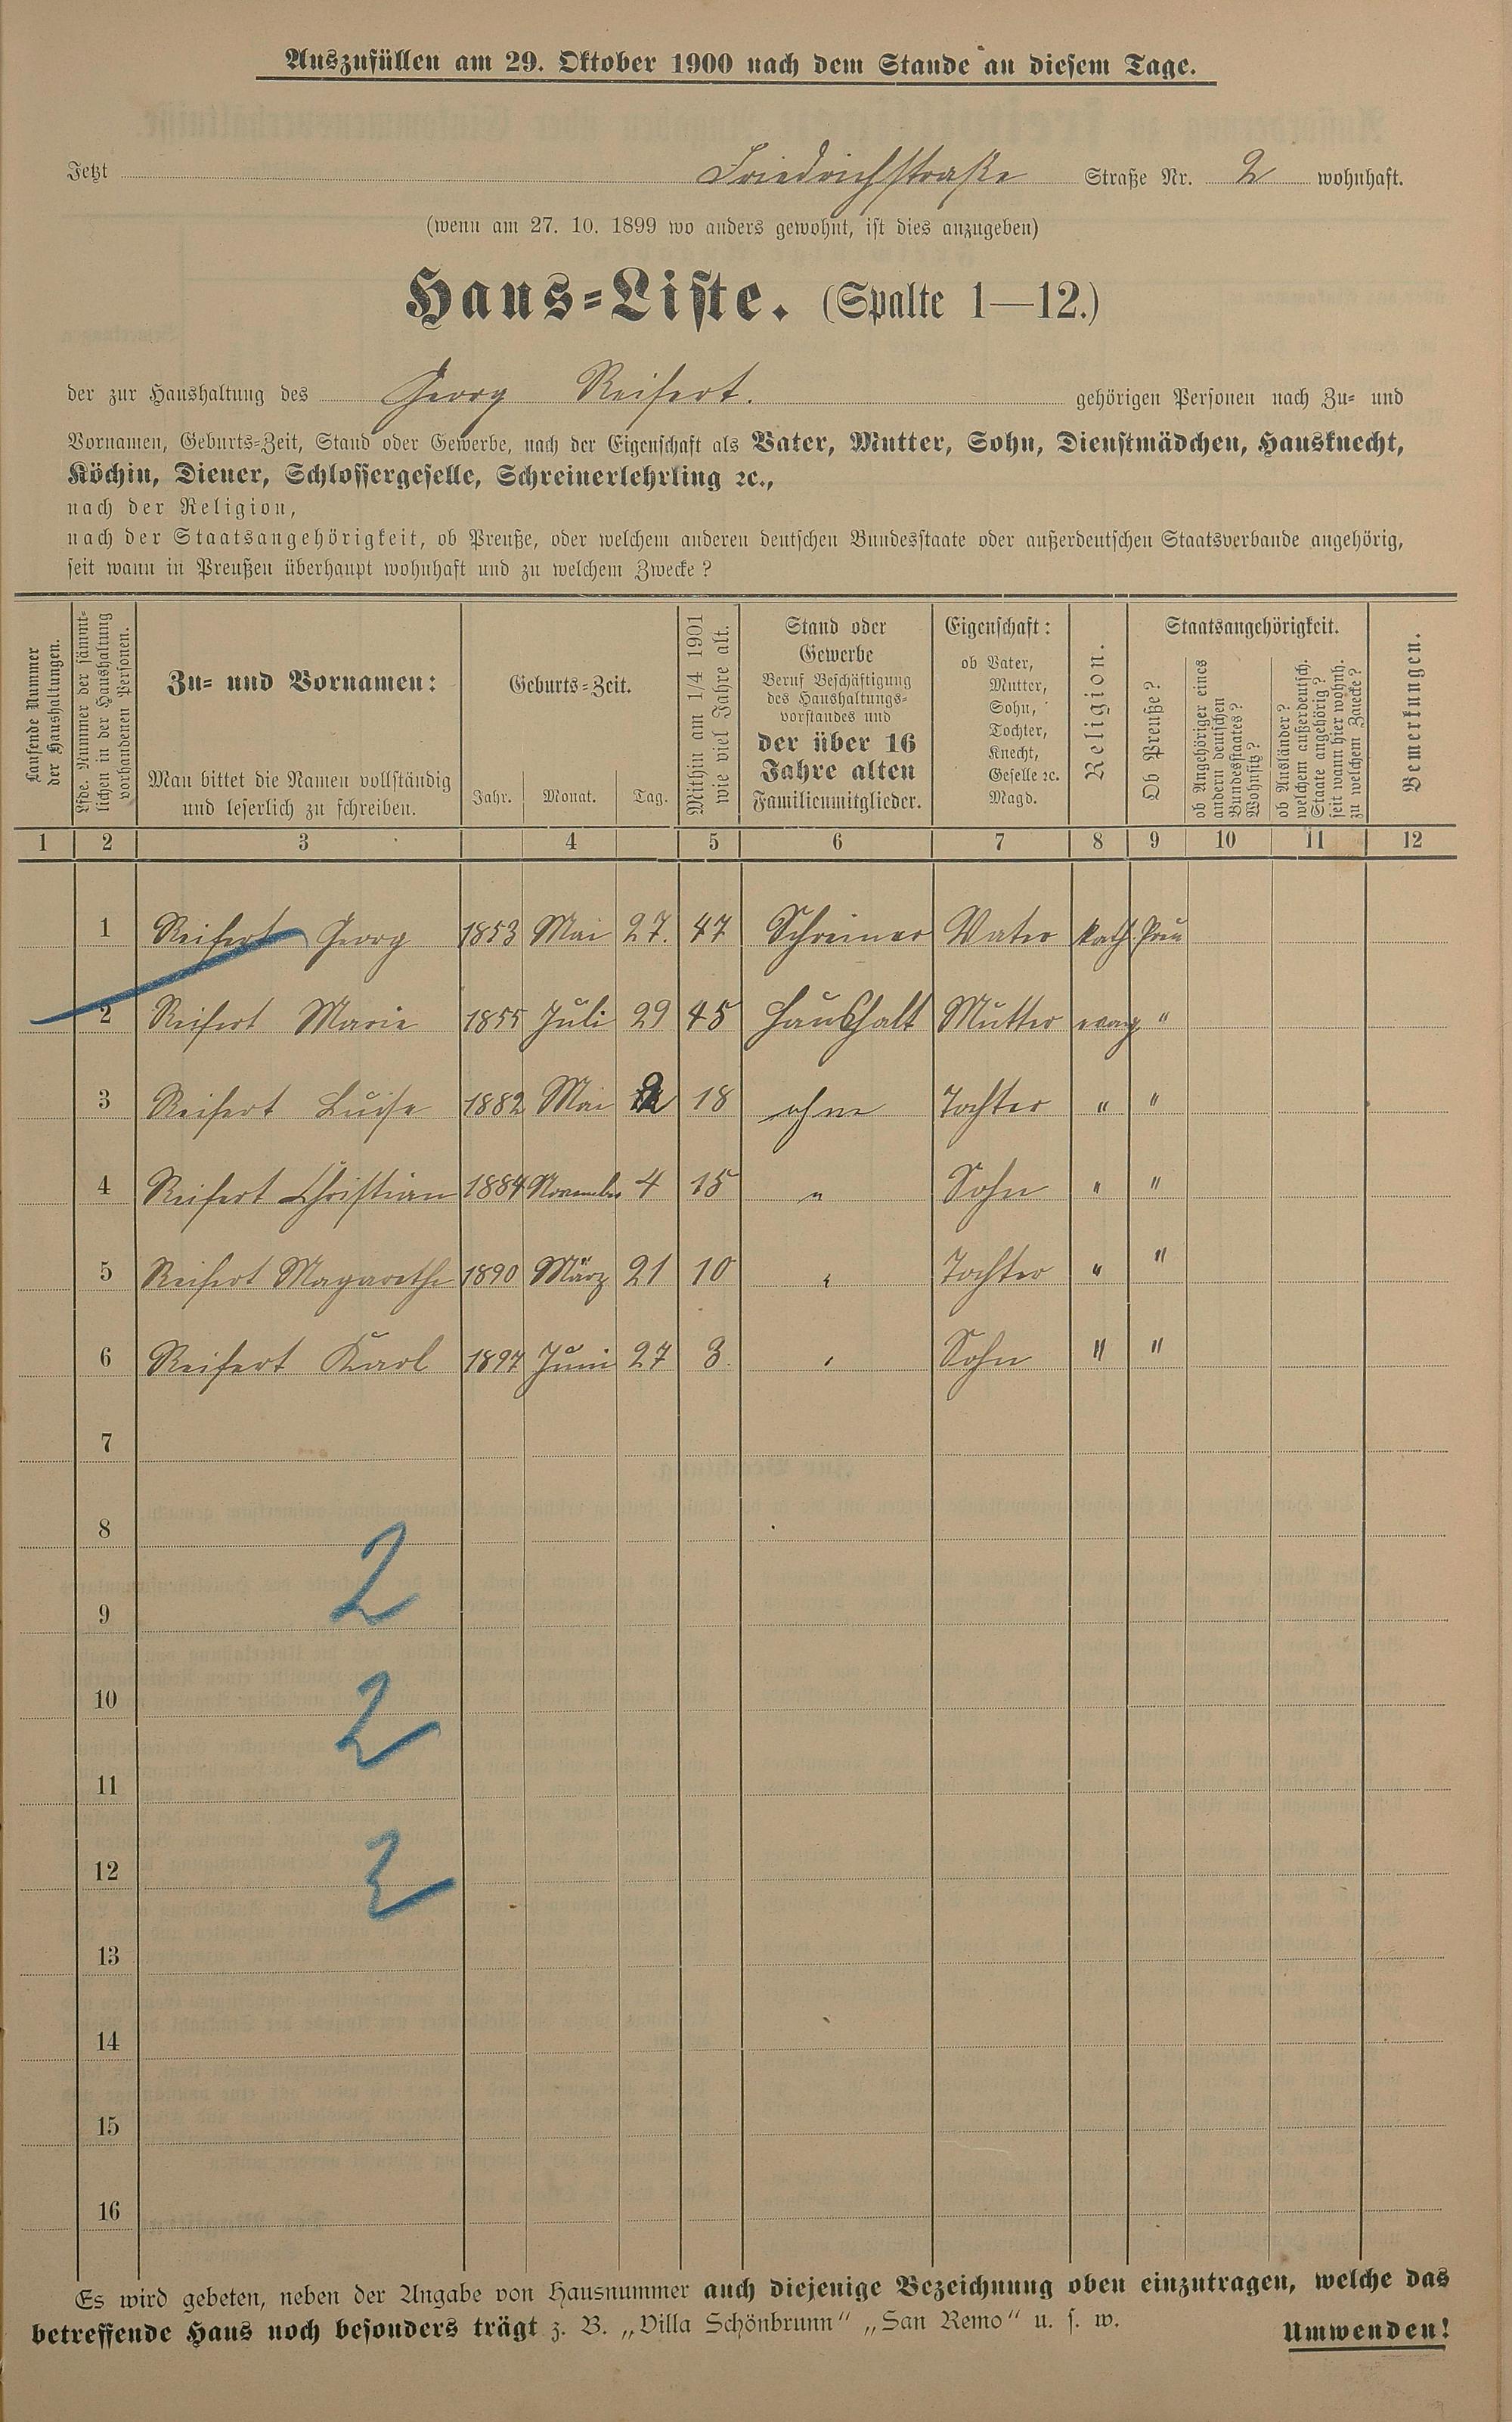 Auszufüllen am 29. Oktober 1900 nach dem Stande an diesem Tage.
Jetzt Friedrichstraße Straße Nr. 2 wohnhaft.
(wenn am 27. 10. 1899 wo anders gewohnt, ist dies anzugeben)
Haus-Liste. (Spalte 1—12.)
der zur Haushaltung des Georg Reifert. gehörigen Personen nach Zu- und
Vornamen, Geburts-Zeit, Stand oder Gewerbe, nach der Eigenschaft als Vater, Mutter, Sohn, Dienstmädchen, Hausknecht,
Köchin, Diener, Schlossergeselle, Schreinerlehrling ꝛc.,
nach der Religion,
nach der Staatsangehörigkeit, ob Preuße, oder welchem anderen deutschen Bundesstaate oder außerdeutschen Staatsverbande angehörig,
seit wann in Preußen überhaupt wohnhaft und zu welchem Zwecke?
Laufende Nummer
der Haushaltungen.
Lfde. Nummer der sämmt-
lichen in der Haushaltung
vorhandenen Personen.
Zu- und Vornamen:
Man bittet die Namen vollständig
und leserlich zu schreiben.
Geburts-Zeit.
Jahr. Monat. Tag.
Mithin am 1/4 1901
wie viel Jahre alt.
Stand oder
Gewerbe
Beruf Beschäftigung
des Haushaltungs-
vorstandes und
der über 16
Jahre alten
Familienmitglieder.
Eigenschaft:
ob Vater,
Mutter,
Sohn,
Tochter,
Knecht,
Geselle ꝛc.
Magd.
Religion.
Staatsangehörigkeit.
Ob Preuße?
ob Angehöriger eines
andern deutschen
Bundesstaates?
Wohnsitz?
ob Ausländer?
welchem außerdeutsch.
Staate angehörig?
seit wann hier wohnh.
zu welchem Zwecke?
Bemerkungen.
1 2 3 4 5 6 7 8 9 10 11 12
1 Reifert Georg 1853 Mai 27. 47 Schreiner Vater kath. Preu
2 Reifert Marie 1855 Juli 29 45 Haushalt Mutter evang "
3 Reifert Luise 1882 Mai 2 18 ohne Tochter " "
4 Reifert Christian 1884 November 4 15 " Sohn " "
5 Reifert Magarethe 1890 März 21 10 " Tochter " "
6 Reifert Karl 1897 Juni 27 3 " Sohn " "
7
8
2
9
10
2
11
12
2
13
14
15
16
Es wird gebeten, neben der Angabe von Hausnummer auch diejenige Bezeichnung oben einzutragen, welche das
betreffende Haus noch besonders trägt z. B. „Villa Schönbrunn" „San Remo" u. s. w.
Umwenden!